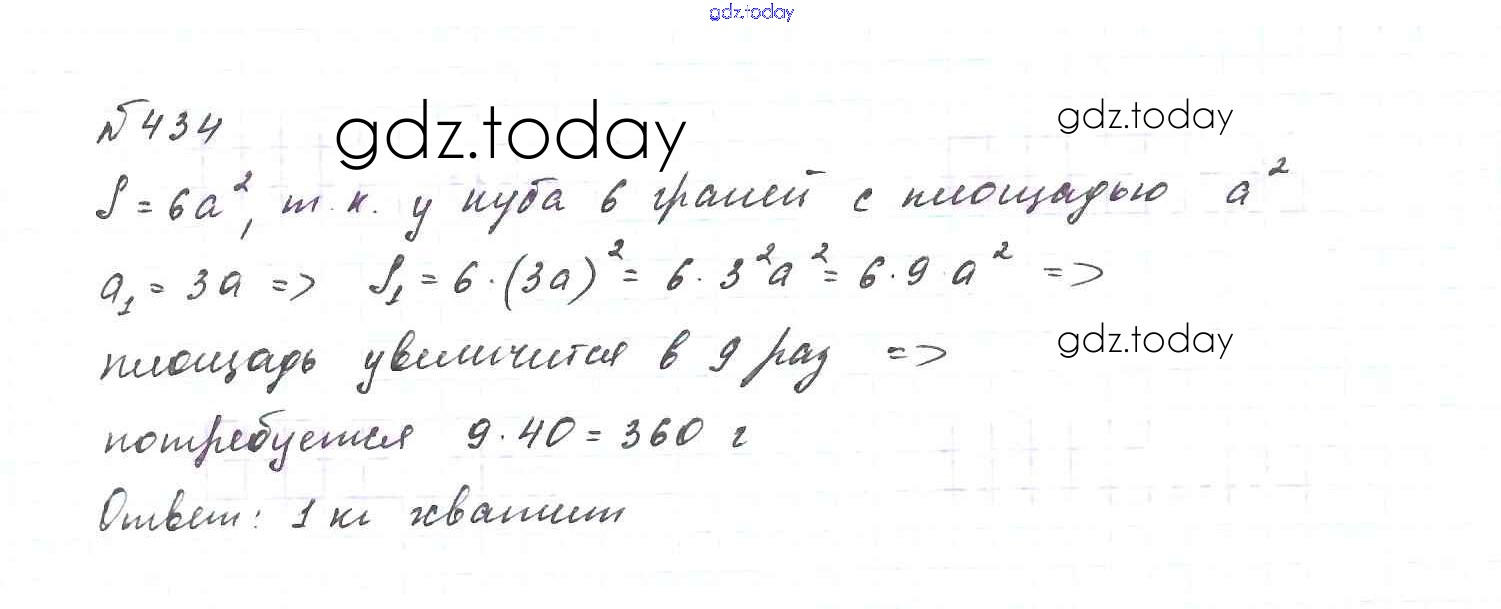 gdz.today
№434 gdz.today gdz.today
S = 6a², т.к. у куба 6 граней с площадью a²
a₁ = 3a => S₁ = 6·(3a)² = 6·3²a² = 6·9·a² =>
площадь увеличится в 9 раз => gdz.today
потребуется 9·40 = 360 г
Ответ: 1 кг хватит